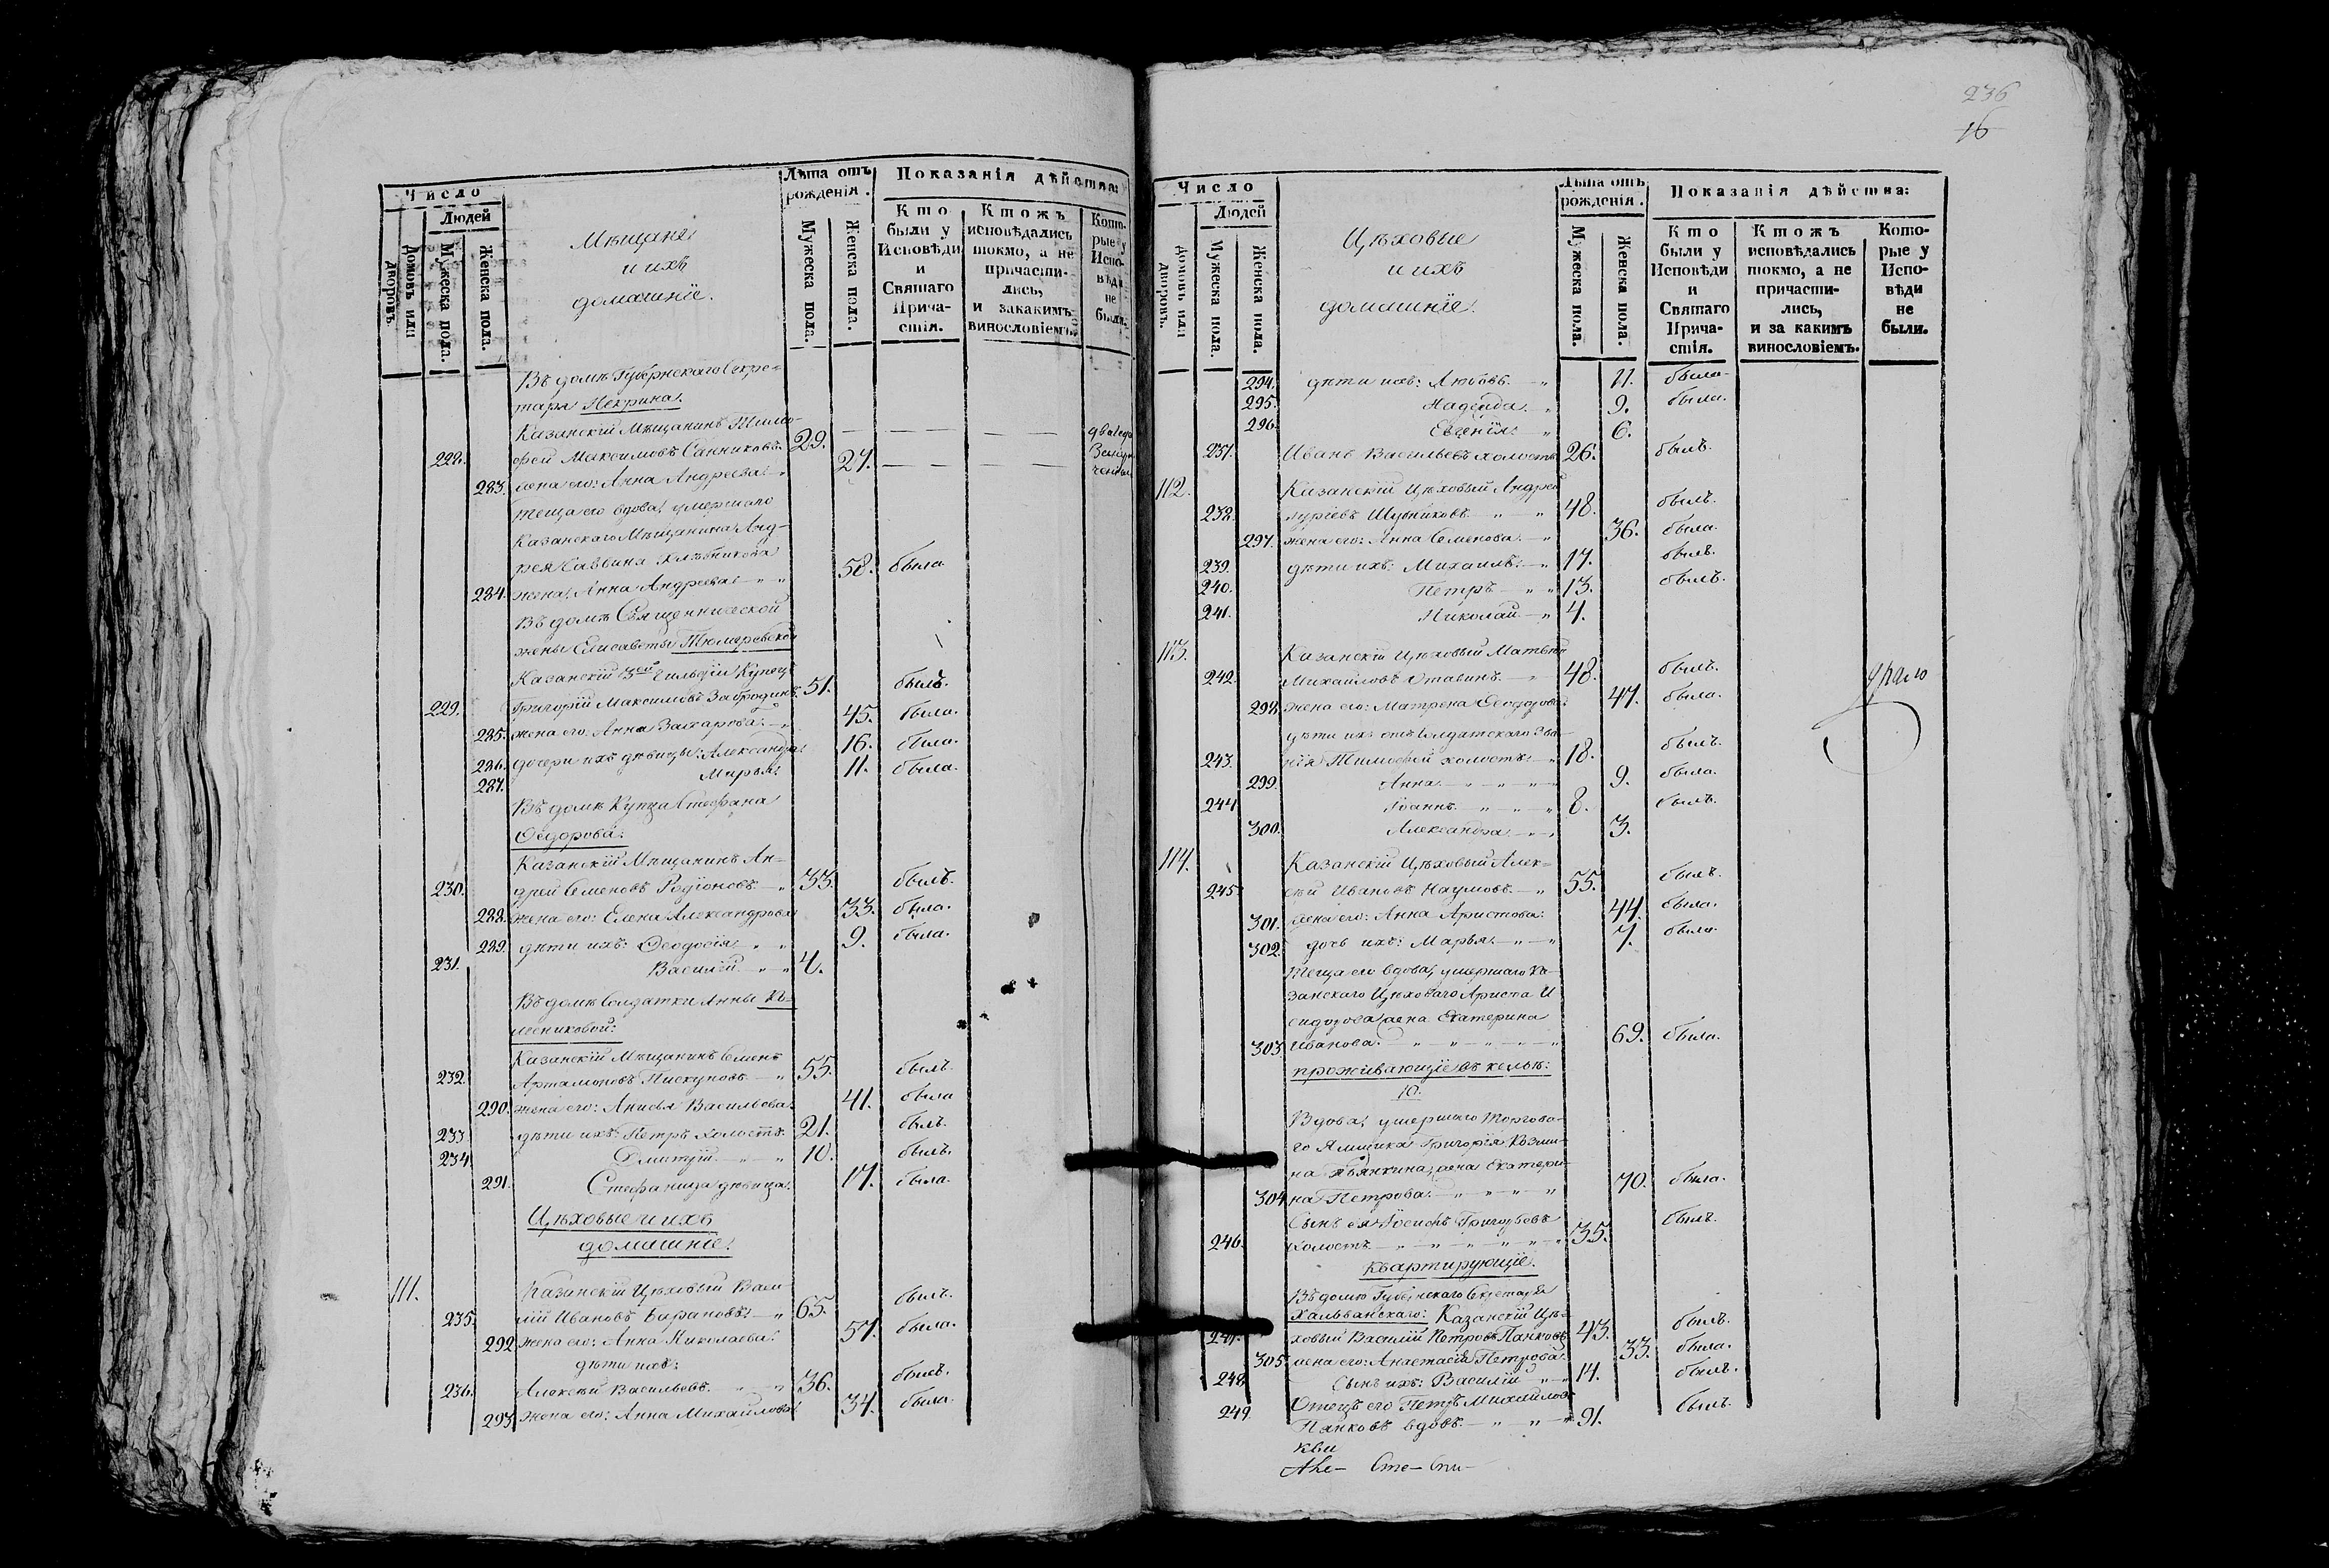 Число
Людей
домовъ или дворовъ.
Мужеска пола.
Женска пола.
Мѣщане
и ихъ
домашніе.
Лѣта отъ рожденія.
Мужеска пола.
Женска пола.
Показанія дѣйства:
Кто были у Исповѣди и Святаго Прича-стія.
Ктожъ исповѣдались токмо, а не причасти-лись, и закакимъ винословіемъ.
Кото-рые у Испо-вѣди не были.
Въ домѣ Губернскаго Секре=
таря Некрина.
Казанскій Мѣщанинъ Тимо-
228. фей Максимовъ Санниковъ. 29.
283. жена его: Анна Андреева 27.
теща его вдова, умершаго
Казанскаго Мѣщанина Анд-
рея Саввина Хлѣбникова
284. жена Анна Андреева 58. была.
Въ домѣ Священнической
жены Елисаветы Тюмеревской
Казанскій 3ей Гильдіи Купецъ
229. Григорій Максимовъ Забродинъ 51. былъ.
285. жена его: Анна Захарова. 45. была.
286. дочери ихъ дѣвицы: Александра 16. была.
287. Марья. 11. была.
Въ домѣ Купца Стефана
Ѳедорова:
Казанскій Мѣщанинъ Ан=
230. дрей Семеновъ Родіоновъ. 33. былъ.
288. жена его: Елена Александрова 33. была.
289. дѣти ихъ: Ѳеодосія 9. была.
231. Василій 4.
Въ домѣ Солдатки Анны Ко=
лесниковой:
Казанскій Мѣщанинъ Семенъ
232. Артамоновъ Пискуновъ. 55. былъ.
290. жена его: Анисья Васильева. 41. была
233. дѣти ихъ: Петръ холостъ. 21. былъ.
234. Дмитрій 10. былъ.
291. Стефанида дѣвица. 17. была.
Цѣховые и ихъ
домашніе.
111. Казанскій Цѣховый Васи-
235. лій Ивановъ Барановъ. 65. былъ.
292. жена его: Анна Николаева. 57. была.
дѣти ихъ:
236. Алексѣй Васильевъ. 36. былъ.
293. жена его: Анна Михайлова 34. была.
236
16
Число
Людей
домовъ или дворовъ.
Мужеска пола.
Женска пола.
Цѣховые
и ихъ
домашніе.
Лѣта отъ рожденія.
Мужеска пола.
Женска пола.
Показанія дѣйства:
Кто были у Исповѣди и Святаго Прича-стія.
Ктожъ исповѣдались токмо, а не причасти-лись, и за какимъ винословіемъ.
Кото-рые у Испо-вѣди не были.
294. дѣти ихъ: Любовь. 11. была.
295. Надежда. 9. была.
296. Евгенія. 6.
237. Иванъ Васильевъ холостъ 26. былъ.
112. Казанскій Цѣховый Андрей
238. Гуріевъ Шубниковъ 48. былъ.
297. жена его: Анна Семенова. 36. была.
239. дѣти ихъ: Михаилъ. 17. былъ.
240. Петръ 13. былъ.
241. Николай 4.
113. Казанскій Цѣховый Матвей
242. Михайловъ Отавинъ. 48. былъ.
298. жена его: Матрена Ѳеодорова 47. была.
дѣти ихъ отъ Солдатскаго Зва-
243. нія Тимоѳей холостъ. 18. былъ.
299. Анна 9. была.
244. Іоаннъ. 8. былъ.
300. Александра 3.
114. Казанскій Цѣховый Алек=
245. сѣй Ивановъ Наумовъ. 55. былъ.
301. жена его: Анна Аристова: 44. была.
302. дочь ихъ: Марья. 7. была.
Теща его вдова, умершаго Ка-
занскаго Цѣховаго Ариста И
сидорова жена Екатерина
303. Иванова. 69. была.
проживающіе въ кельѣ:
10.
Вдова, умершаго Торгова-
го Ямщика Григорія Козми-
на Пьянкина, жена Екатери-
304. на Петрова. 70. была.
Сынъ ея Іосифъ Григорьевъ
246. холостъ 35. былъ.
Квартирующіе.
Въ домѣ Губернскаго Секретаря
Хальванскаго: Казанскій Цѣ-
247. ховый Василій Петровъ Панковъ 43. былъ.
305. жена его: Анастасія Петрова. 33. была.
248. Сынъ ихъ: Василій 14. былъ.
Отецъ его Петръ Михайловъ
249. Панковъ вдовъ. 91. былъ.